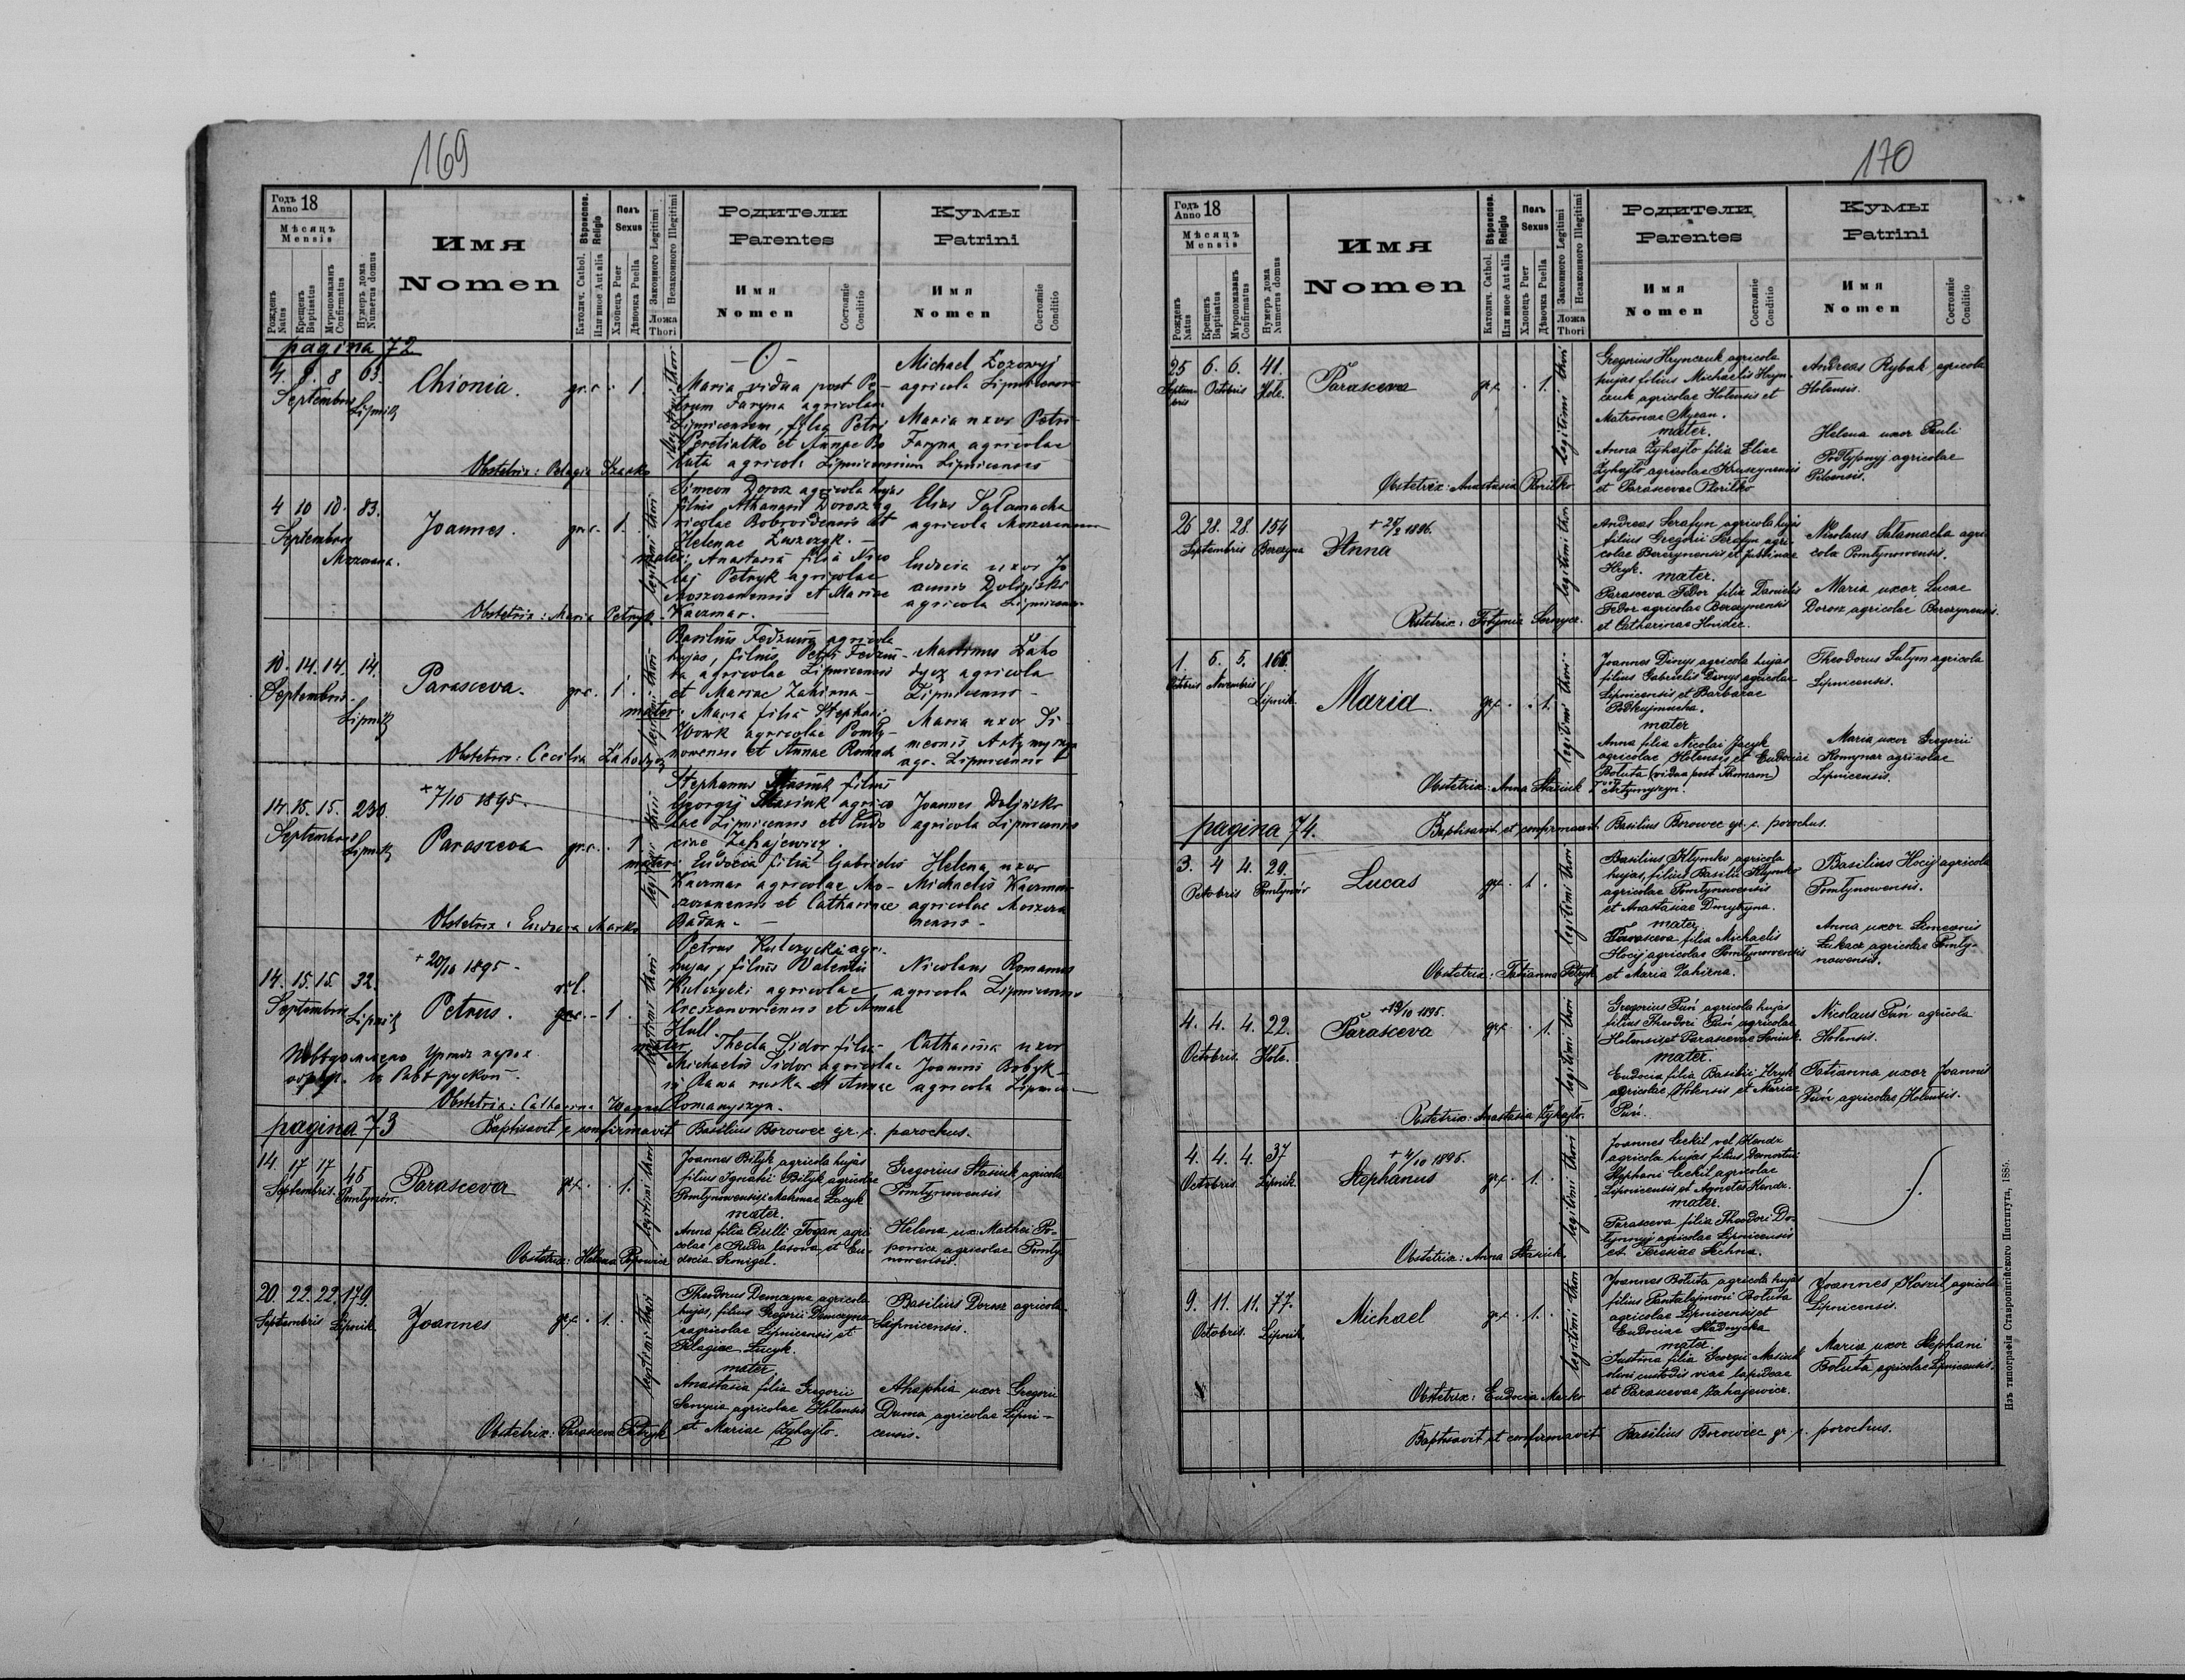 169
Годъ Anno 18
Мѣсяцъ
Mensis
Рожденъ Natus
Крещенъ Baptisatus
Мѵропомазанъ Confirmatus
Нумеръ дома Numerus domus
Имя
Nomen
Вѣроиспов. Religio
Католич. Cathol.
Или иное Aut alia
Полъ
Sexus
Хлопецъ Puer
Дѣвочка Puella
Законного Legitimi
Незаконного Illegitimi
Ложа
Thori
Родители
Parentes
Имя
Nomen
Состояніе
Conditio
Кумы
Patrini
Имя
Nomen
Состояніе
Conditio
pagina 72
4. 8. 8 63.
Septembris Lipnik
Chionia. gr. c. 1.
Maria vidua post Pe-
trum Faryna agricolam
Lipnicensem, filia Petri
Peretiatko et Annae Bo
luta agricol. Lipnicensium
Michael Łozowyj
agricola Lipnicensis
Maria uxor Petri
Faryna agricolae
Lipnicensis
Obstetrix: Pelagia
4 10 10. 83.
Septembris
Moszczana.
Joannes. gr. c. 1.
legitimi thori
Simeon Dorosz agricola hujas
filius Athanasii Dorosz ag
ricolae Bobroidensis et
Helenae Łuszczyk. -
mater: Anastasia filia Nico
laj Petryk agricolae
Moszczanensis et Mariae
Kaczmar.
Elias Salamacha
agricola Moszczanensis
Eudocia uxor Jo
annis Dolynsko
agricola Lipnicensis
Obstetrix: Maria Petryk
10. 14. 14. 14.
Septembris
Lipnik
Parasceva. gr. c. 1.
legitimi thori
Basilius Fedzuniz agricola
hujas, filius Petri
agricolae Lipnicensis
et Mariae Zahirna -
mater: Maria filia Stephani
Wowk agricolae Pomły-
nowensis et Annae Romach
Martinus Zaho
agricola
Lipnicensis -
Maria uxor Si-
meonis Artymyszyn
agr. Lipnicensis
Obstetrix: Cecilia
14. 15. 15. 230.
Septembris Lipnik
+ 7/10 1895.
Parasceva gr. c. 1
legitimi thori
Stephanus Masiuk filius
Georgij Masiuk agrico
lae Lipnicensis et Eudo
ciae Zahajewicz.
mater: Eudocia filia Gabrielis
Kaczmar agricolae Mo-
szczanensis et Catharinae
Badan -
Joannes Dolińsko
agricola Lipnicensis
Helena uxor
Michaelis Kaczmar
agricolae Moszcza
nensis -
Obstetrix: Eudocia Marko
14. 15. 15. 32.
Septembris Lipnik
+ 20/10 1895 -
Petrus. r.l. 1
legitimi thori
Petrus Kulczycki agr.
hujas, filius Valentii
Kulczycki agricolae
Cieszanoviensis et Annae
Hull
mater. Thecla Sidor filia
Michaelis Sidor agricolae
Rawa ruska et Annae
Romanyszyn.
Nicolaus Romanus
agricola Lipnicensis
Catharina uxor
Joannis Bobyk -
agricola Lipnic-
Obstetrix: Catharina Wagner
pagina 73
Baptisavit et confirmavit Basilius Borowec gr. c. parochus.
14. 17 17 46
Septembris. Pomłynów.
Parasceva gr. c. 1.
legitimi thori
Joannes Bityk agricola hujas
filius Ignatii Bityk agricolae
Pomłynowensis Łucyk
mater.
Anna filia Cirilli Togan agri
colae e Ruda lasowa et Eu-
docia
Gregorius Stasiuk agricola
Pomłynowensis
Helena ux. Mathei Po-
powicz agricolae Pomły
nowensis.
Obstetrix: Helena Popowicz
20. 22. 22. 179.
Septembris Lipnik.
Joannes gr. c. 1.
legitimi thori
Theodorus Demczyna agricola
hujas, filius Gregorii Demczyna
agricolae Lipnicensis et
Pelagiae Lucyk.
mater
Anastasia filia Gregorii
agricolae Holensis
et Mariae Zyhajło.
Basilius Dorosz agricola
Lipnicensis.
Ahaphia uxor Gregorii
Duma agricolae Lipni-
censis.
Obstetrix: Parasceva Petryk
170
Годъ Anno 18
Мѣсяцъ
Mensis
Рожденъ Natus
Крещенъ Baptisatus
Мѵропомазанъ Confirmatus
Нумеръ дома Numerus domus
Имя
Nomen
Вѣроиспов. Religio
Католич. Cathol.
Или иное Aut alia
Полъ
Sexus
Хлопецъ Puer
Дѣвочка Puella
Законного Legitimi
Незаконного Illegitimi
Ложа
Thori
Родители
Parentes
Имя
Nomen
Состояніе
Conditio
Кумы
Patrini
Имя
Nomen
Состояніе
Conditio
25 6. 6. 41.
Septem-
bris Octobris Hole.
Parasceva gr. c. 1.
legitimi thori
Gregorius Hrynczuk agricola
hujas filius Michaelis Hryn-
czuk agricolae Holensis et
Matronae Myzan.
mater.
Anna Zyhajło filia Eliae
Zyhajło agricolae
et Parascevae
Andreas Rybak agricola
Holensis.
Helena uxor Pauli
agricolae
Obstetrix: Anastasia
26 28. 28. 154
Septembris Berezyna
+ 26/2 1896.
Anna
legitimi thori
Andreas Serafyn agricola hujas
filius Gregorii Serafyn agri-
colae Berezynensis et Justinae
Hryk. mater.
Parasceva Fedor filia Danielis
Fedor agricolae Berezynensis
et Catharinae Hnidec.
Nicolaus Salamacha agri
cola Pomłynowensis.
Maria uxor Lucae
Dorosz agricolae Berezynensis.
Obstetrix:
1. 5. 5. 166.
Octobris Novembris Lipnik.
Maria. gr. c. 1.
legitimi thori
Joannes Dinys agricola hujas
filius Gabrielis Dinys agricolae
Lipnicensis et Barbarae
mater
Anna filia Nicolai Jacyk
agricolae Holensis et Eudociae
Boluta (vidua post Thomam)
Artymyszyn.
Theodorus agricola
Lipnicensis.
Maria uxor Gregorii
Komynar agricolae
Lipnicensis.
Obstetrix: Anna Stasiuk
pagina 74.
Baptisavit et confirmavit Basilius Borowec gr. c. parochus.
3. 4 4. 29.
Octobris Pomłynów
Lucas gr. c. 1.
legitimi thori
Basilius Klymko agricola
hujas, filius Basilii Klymko
agricolae Pomłynowensis
et Anastasiae Dmytryna.
mater.
Parasceva filia Michaelis
Hocij agricolae Pomłynowensis
et Maria Zahirna.
Basilius Hocij agricola
Pomłynowensis.
Anna uxor Simeonis
Lukacz agricolae Pomły-
nowensis.
Obstetrix: Tatianna Petryk
4. 4. 4. 22.
Octobris. Hole.
+19/10 1895.
Parasceva gr. c. 1.
legitimi thori
Gregorius Puń agricola hujas
filius Theodori Puń agricolae
Holensis et Parascevae
mater.
Eudocia filia Basilii Hryk
agricolae Holensis et Mariae
Puń.
Nicolaus Puń agricola
Holensis.
Tatianna uxor Joannis
Puń agricolae Holensis.
Obstetrix: Anastasia Zyhajło.
4. 4. 4. 37
Octobris. Lipnik.
+ 4/10 1895.
Stephanus gr. c. 1.
legitimi thori
Joannes Cechil vel Kendz
agricola hujas filius demortui
Stephani Cechil agricolae
Lipnicensis et Agnetes Kendz.
mater.
Parasceva filia Theodori Do-
agricolae Lipnicensis
et
Obstetrix: Anna Stasiuk
9. 11. 11. 77.
Octobris. Lipnik.
Michael gr. c. 1.
legitimi thori
Joannes Boluta agricola hujas
filius Pantalejmoni Boluta
agricolae Lipnicensis et
Eudociae Stadnycka
mater.
Justina filia Georgii Masiuk
olim custodis viae lapideae
et Parascevae Zahajewicz.
Joannes Kozil agricola
Lipnicensis.
Maria uxor Stephani
Boluta agricolae Lipnicensis.
Obstetrix: Eudocia Marko
Baptisavit et confirmavit Basilius Borowiec gr. c. parochus.
Изъ типографіи Ставропигійского Института, 1885.